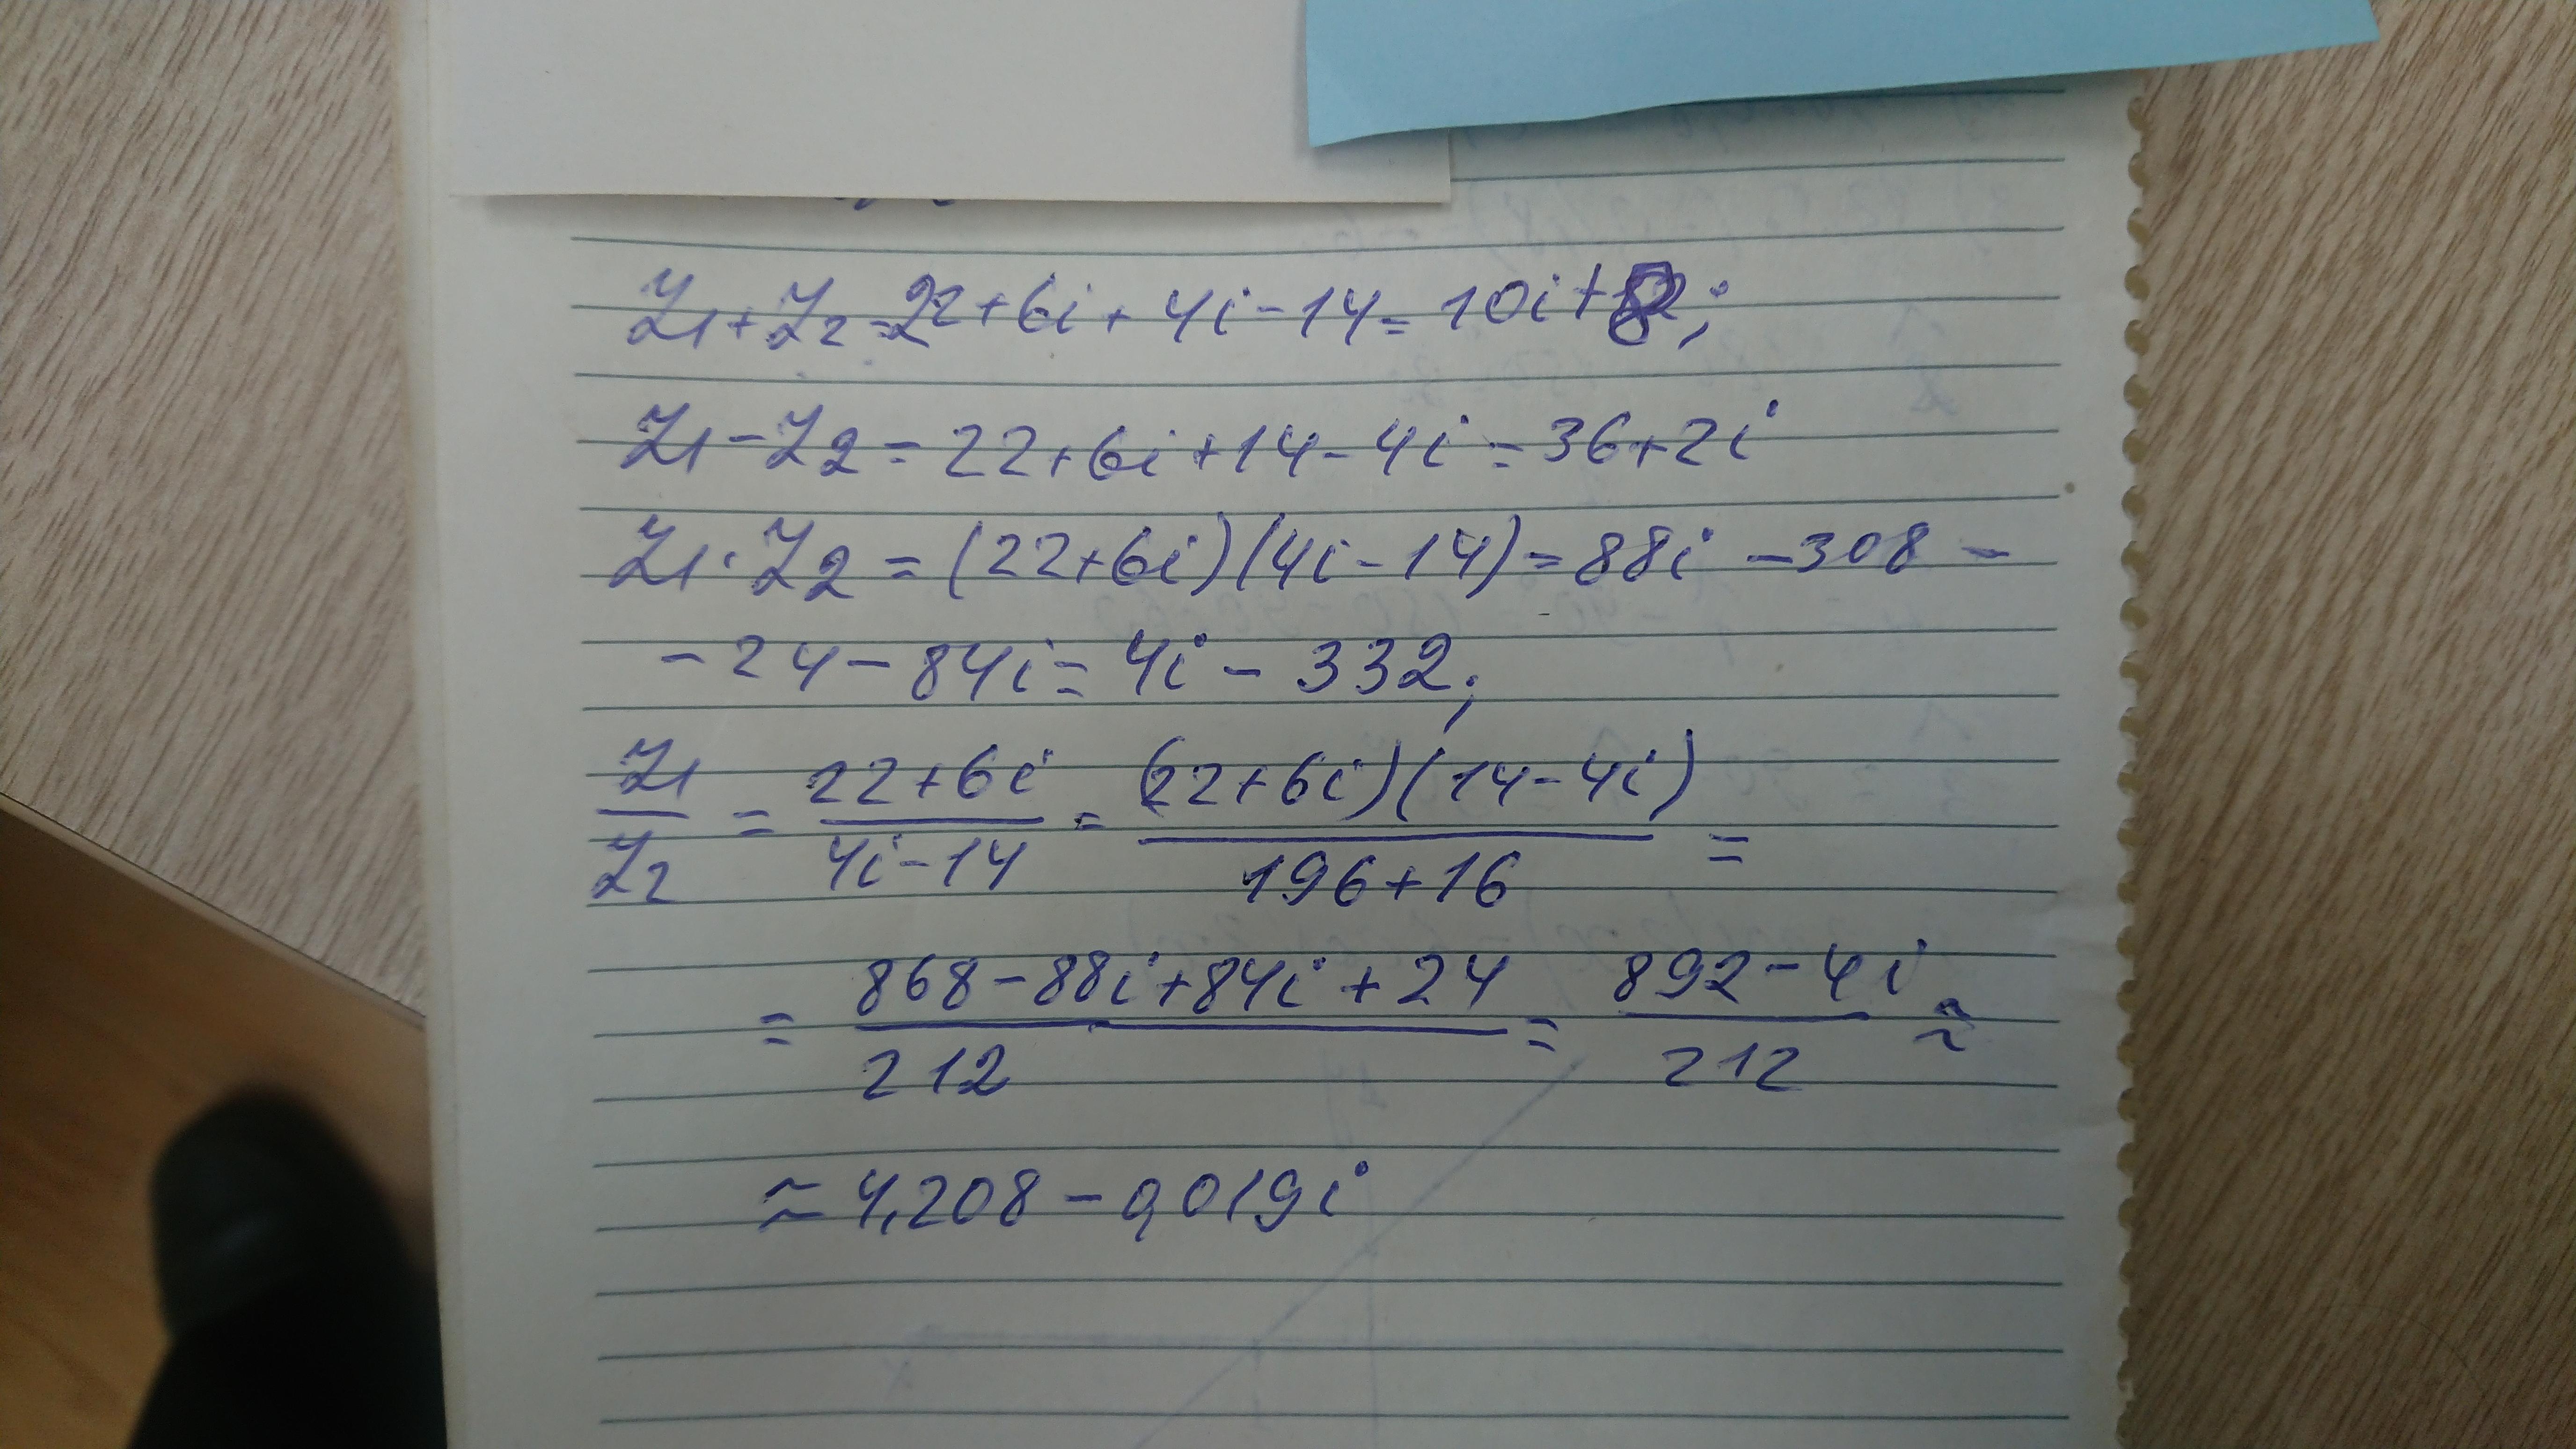 Z1 + Z2 = 22 + 6i + 4i - 14 = 10i + 8;
Z1 - Z2 = 22 + 6i + 14 - 4i = 36 + 2i
Z1 · Z2 = (22 + 6i)(4i - 14) = 88i - 308 -
- 24 - 84i = 4i - 332;
Z1/Z2 = (22 + 6i)/(4i - 14) = ((22 + 6i)(14 - 4i))/(196 + 16) =
= (868 - 88i + 84i + 24)/212 = (892 - 4i)/212 ≈
≈ 4,208 - 0,019i